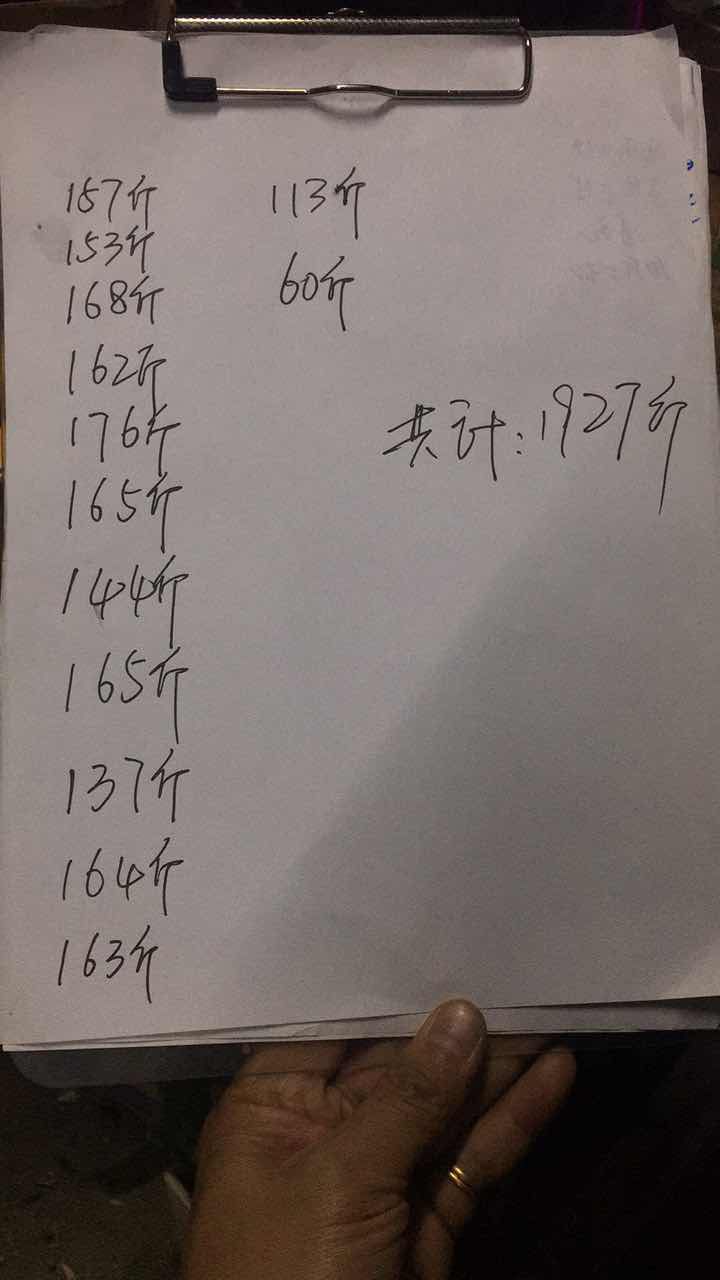 157斤
153斤
168斤
162斤
176斤
165斤
144斤
165斤
137斤
164斤
163斤
113斤
60斤
共计:1927斤